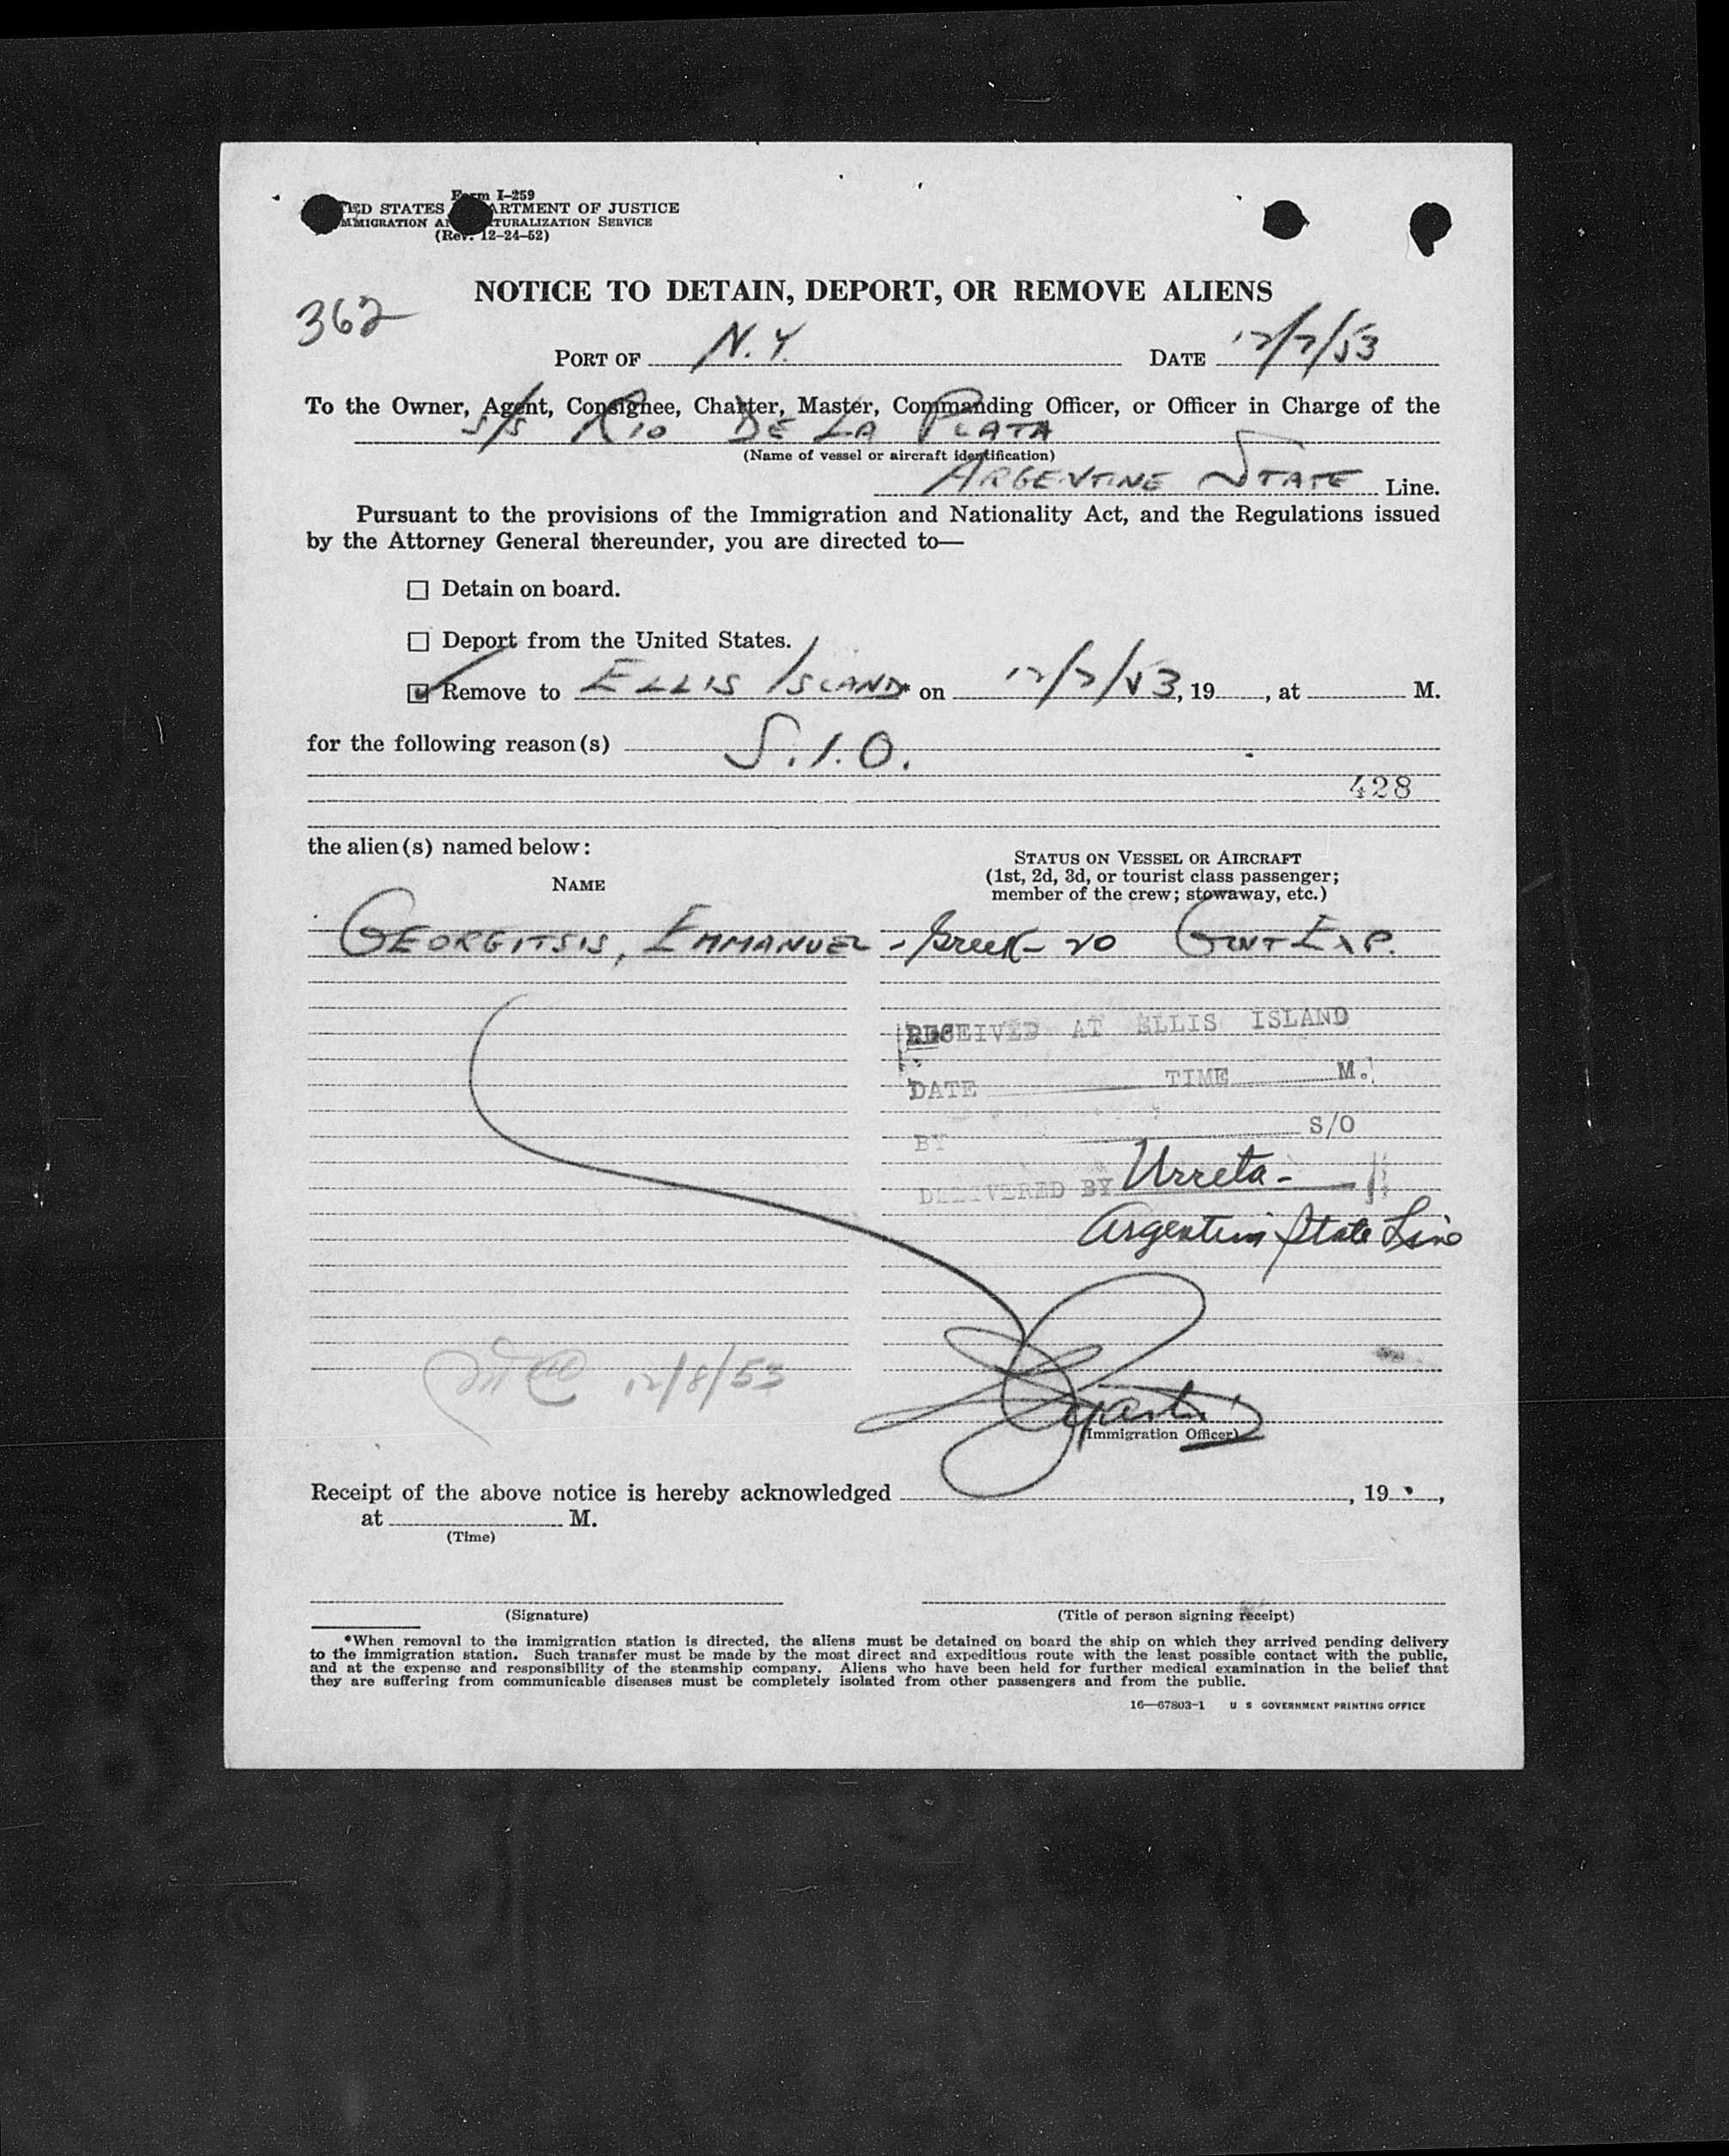 Form I-259
TED STATES ARTMENT OF JUSTICE
MMIGRATION A TURALIZATION SERVICE
(Rev. 12-24-52)
NOTICE TO DETAIN, DEPORT, OR REMOVE ALIENS
362
PORT OF N.Y. DATE 12/7/53
To the Owner, Agent, Consignee, Charter, Master, Commanding Officer, or Officer in Charge of the
S/S RIO DE LA PLATA
(Name of vessel or aircraft identification)
ARGENTINE STATE Line.
Pursuant to the provisions of the Immigration and Nationality Act, and the Regulations issued
by the Attorney General thereunder, you are directed to—
☐ Detain on board.
☐ Deport from the United States.
☑ Remove to ELLIS ISLAND* on 12/7/53, 19, at M.
for the following reason(s) S.I.O.
428
the alien(s) named below:
STATUS ON VESSEL OR AIRCRAFT
(1st, 2d, 3d, or tourist class passenger;
NAME
member of the crew; stowaway, etc.)
GEORGITSIS, EMMANUEL - Greek - 20 GWT EXP.
RECEIVED AT ELLIS ISLAND
DATE TIME M.
BY S/O
DELIVERED BY Urreta -
Argentine State Line
12/8/53
(Immigration Officer)
Receipt of the above notice is hereby acknowledged , 19 ,
at M.
(Time)
(Signature) (Title of person signing receipt)
*When removal to the immigration station is directed, the aliens must be detained on board the ship on which they arrived pending delivery
to the immigration station. Such transfer must be made by the most direct and expeditious route with the least possible contact with the public,
and at the expense and responsibility of the steamship company. Aliens who have been held for further medical examination in the belief that
they are suffering from communicable diseases must be completely isolated from other passengers and from the public.
16—67803-1 U S GOVERNMENT PRINTING OFFICE